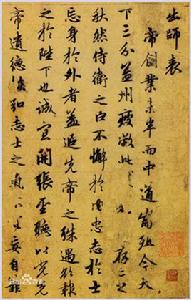 出師表
帝創業未半而中道崩殂今天
下三分益州罷敝此存亡之
秋然侍衛之臣不懈於內忠志士
忘身於外者蓋追先帝之殊遇欲報
之於陛下也誠宜開張聖聽以光
帝遺德恢弘志士之氣不宜妄自菲